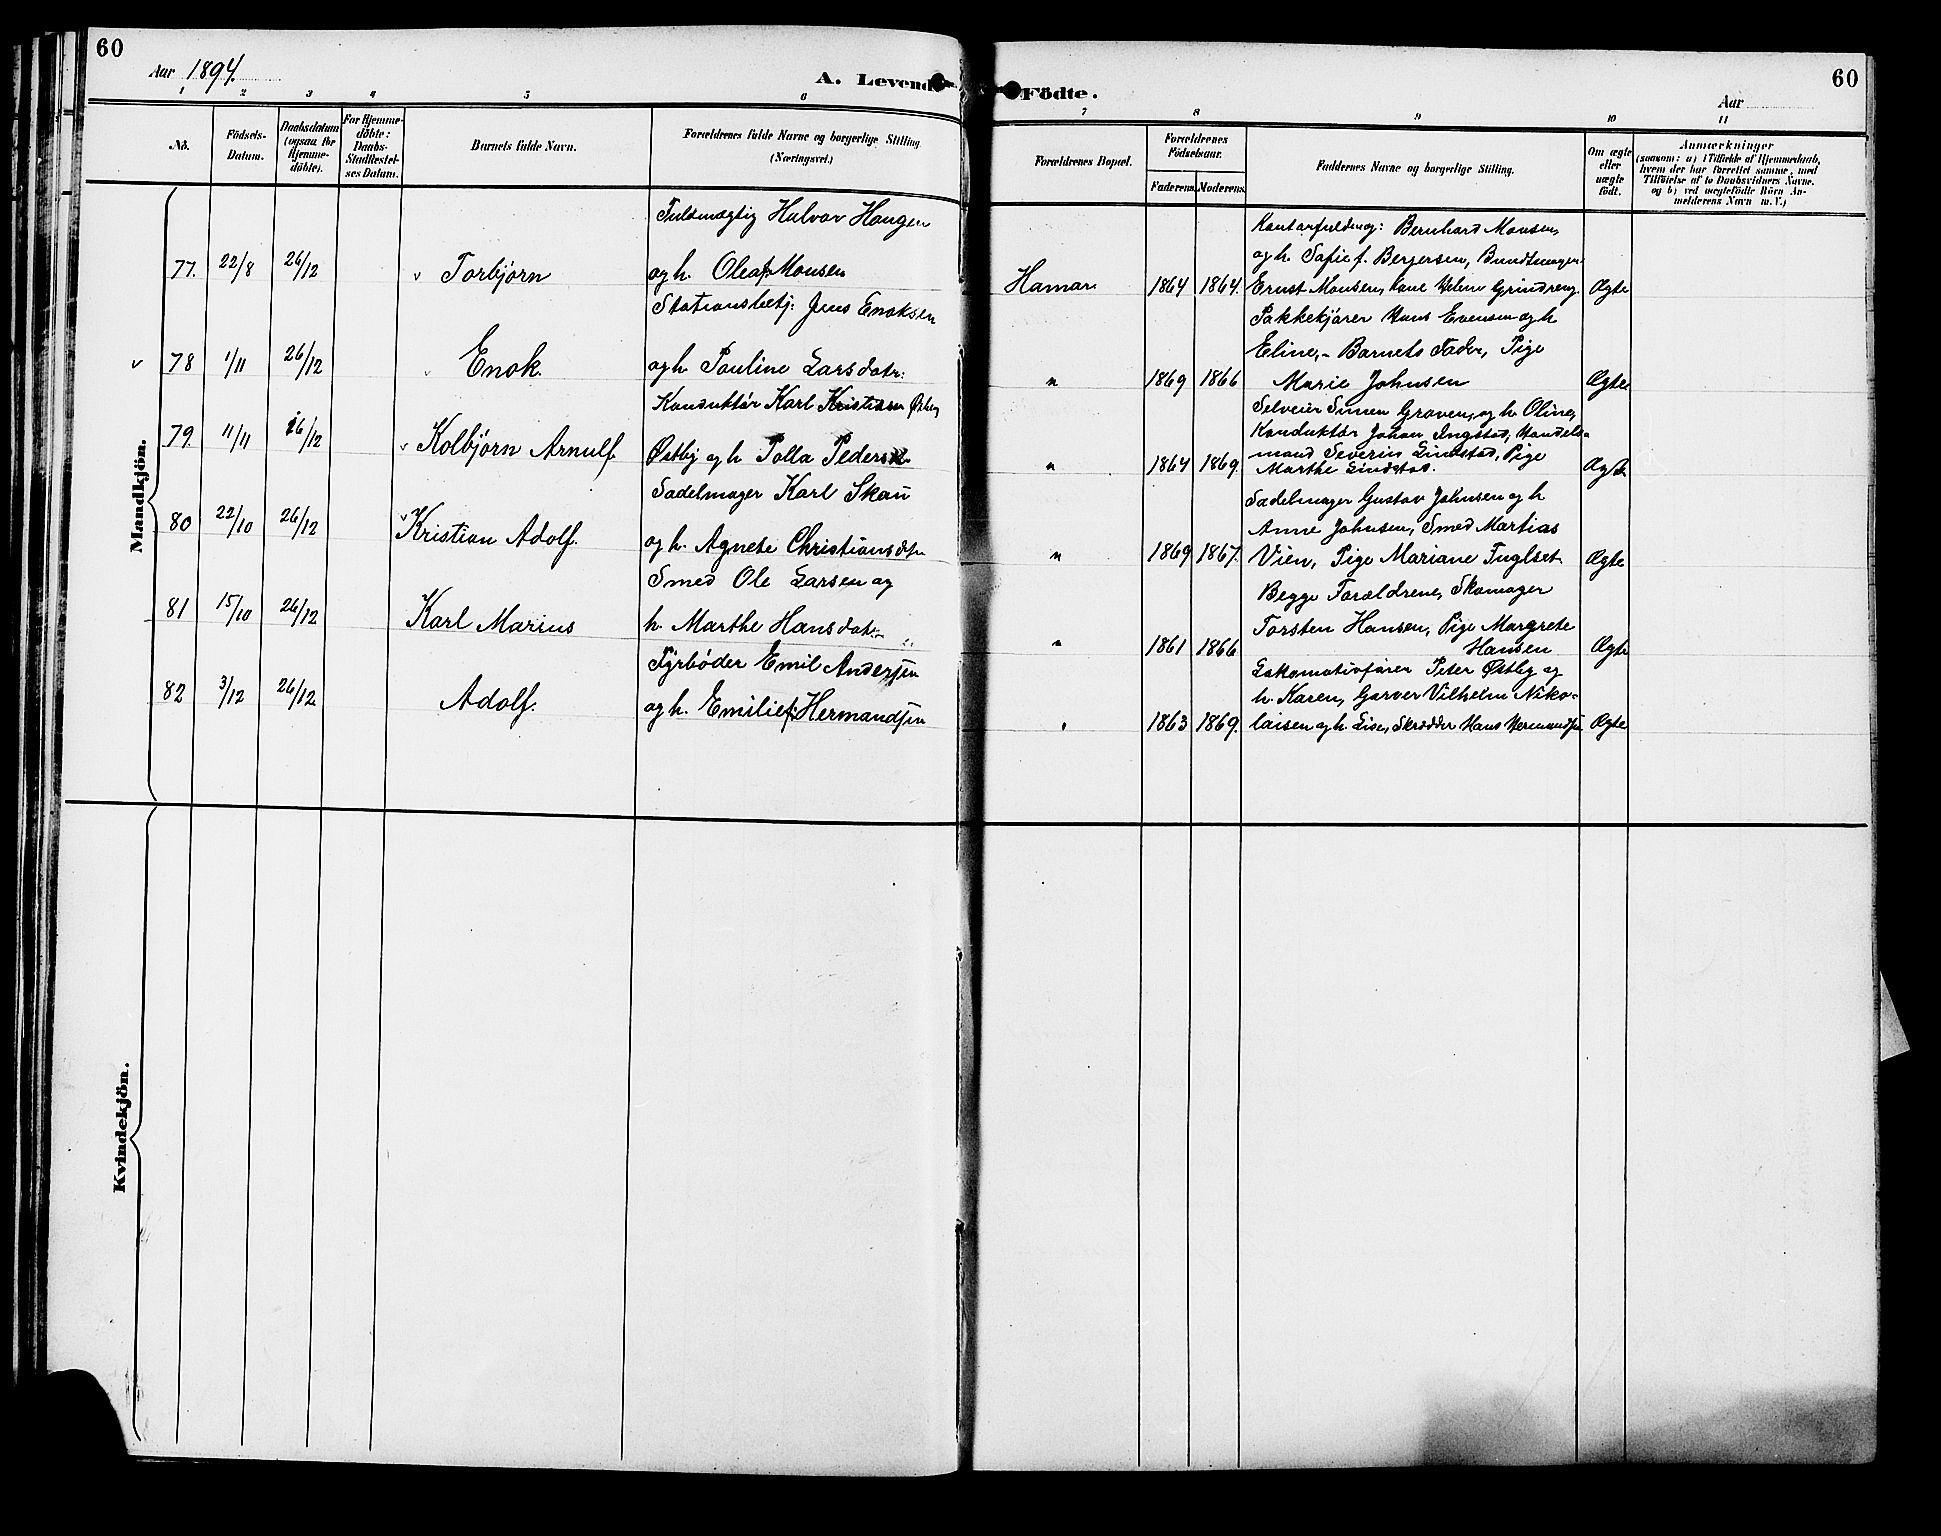 60
60
Aar 1894.
A. Levende
Födte.
Aar
1 2 3 4 5 6 7 8 9 10 11
No.
Födsels-
Datum.
Daabsdatum
(ogsaa for
Hjemme-
døbte).
For Hjemme-
døbte:
Daabs-
Stadfæstel-
ses Datum.
Barnets fulde Navn.
Forældrenes fulde Navne og borgerlige Stilling
(Næringsvei.)
Forældrenes Bopæl.
Forældrenes
Födselsaar.
Faderens. Moderens.
Faddernes Navne og borgerlige Stilling.
Om ægte
eller
uægte
født.
Anmærkninger
(saasom: a) i Tilfælde af Hjemmedaab,
hvem der har forrettet samme, med
Tilføielse af to Daabsvidners Navne.
og b) ved uægtefødte Börn An-
melderens Navn m. V.)
Mandkjön.
77. 22/8 26/12 v Torbjørn
Fuldmægtig Halvor Haugen
og h. Olea f. Monsen
Hamar 1864 1864.
Kontorfuldmg: Bernhard Monsen,
og h. Sofie f. Bergersen, Bundtmager
Ernst Monsen, Kone Helene Grindreng.
Ægte
v 78 1/11 26/12 Enok.
Stationsbetj. Jens Enoksen
og h. Pauline Larsdatr:
" 1869 1866
Pakkekjører Hans Evensen og h
Eline, - Barnets Fader, Pige
Marie Johnsen
Ægte
79. 11/11 26/12 v Kolbjørn Arnulf
Konduktør Karl Kristian Østby
Østby og h Polla Pedersen
" 1864 1869.
Selveier Simen Graven, og h. Oline,
Konduktør Johan Ingstad, Handels-
mand Severin Lindstad, Pige
Marthe Lindstad.
Ægte
80 22/10 26/12 v Kristian Adolf.
Sadelmager Karl Skau
og h. Agnete Christiansdtr
" 1869 1867.
Sadelmager Gustav Johnsen og h
Anne Johnsen, Smed Martias
Vien, Pige Mariane Fuglset.
Ægte
81 15/10 26/12 Karl Marius
Smed Ole Larsen og
h. Marthe Hansdatr
" 1861 1866
Begge Forældrene, Skomager
Torsten Hansen, Pige Margrete
Hansen
Ægte
82 3/12 26/12 Adolf.
Fyrbøder Emil Andersen
og h. Emilie f. Hermandsen
" 1863 1869.
Lokomotivfører Peter Østby og
h. Karen, Garver Vilhelm Niko-
laisen og h. Lise, Skrædder Hans Hermandsen
Ægte
Kvindekjön.